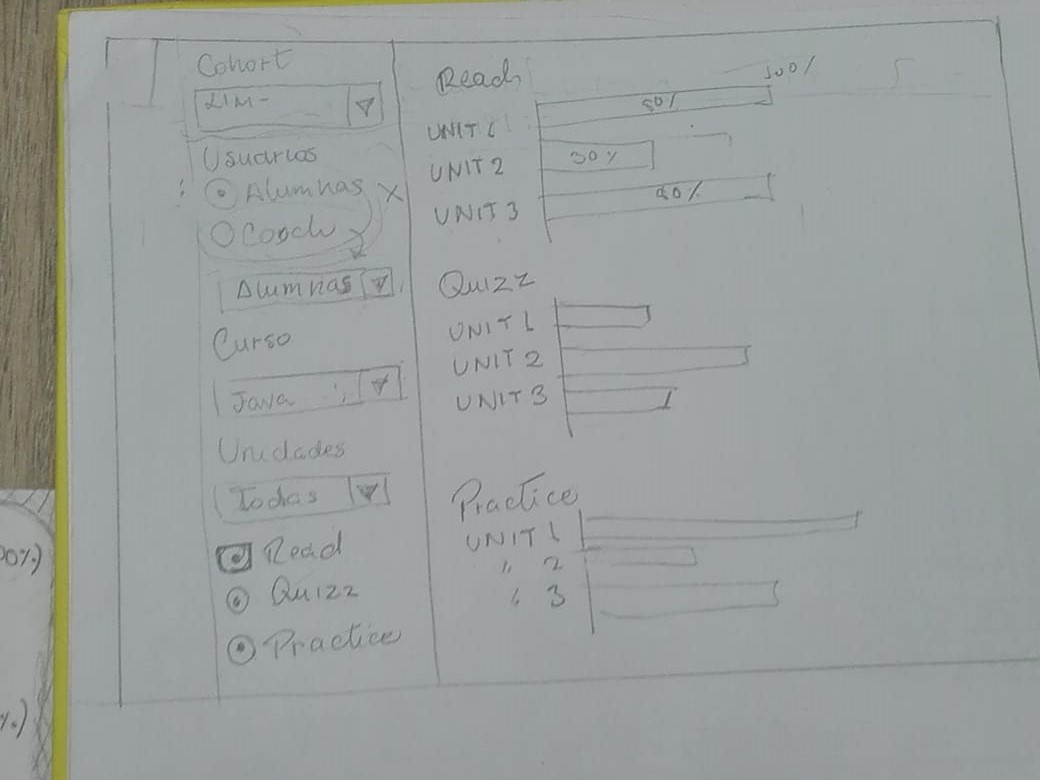 Cohort
LIM-
Usuarios
Alumnas X
Coach
Alumnas
Curso
Java
Unidades
Todas
Read
Quizz
Practice
Read
100%
UNIT 1 80%
UNIT 2 30%
UNIT 3 80%
Quizz
UNIT 1
UNIT 2
UNIT 3
Practice
UNIT 1
" 2
" 3
00%)
%)